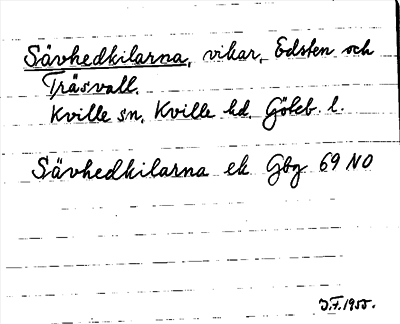 Sävhedkilarna, vikar, Edsten och
Träsvall.
Kville sn, Kville hd, Göteb. l.
Sävhedkilarna ek Gbg 69 NO
J.F. 1955.